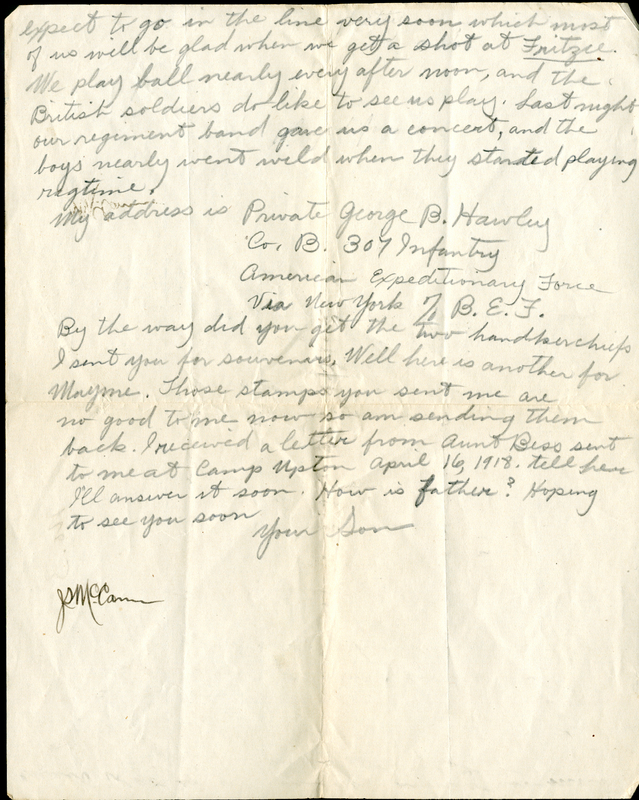 expect to go in the line very soon which most
of us will be glad when we get a shot at Fritzee.
We play ball nearly every after noon, and the
British soldiers do like to see us play. Last night
our regiment band gave us a concert, and the
boys nearly went wild when they started playing
ragtime.
My address is Private George B. Hawley
Co. B. 307 Infantry
American Expeditionary Force
Via New York % B. E. F.
By the way did you get the two handkerchiefs
I sent you for souvenirs. Well here is another for
Mayme. Those stamps you sent me are
no good to me now so am sending them
back. I received a letter from Aunt Bess sent
to me at Camp Upton April 16, 1918. tell here
I'll answer it soon. How is father? Hoping
to see you soon
Your Son
JSMcCann